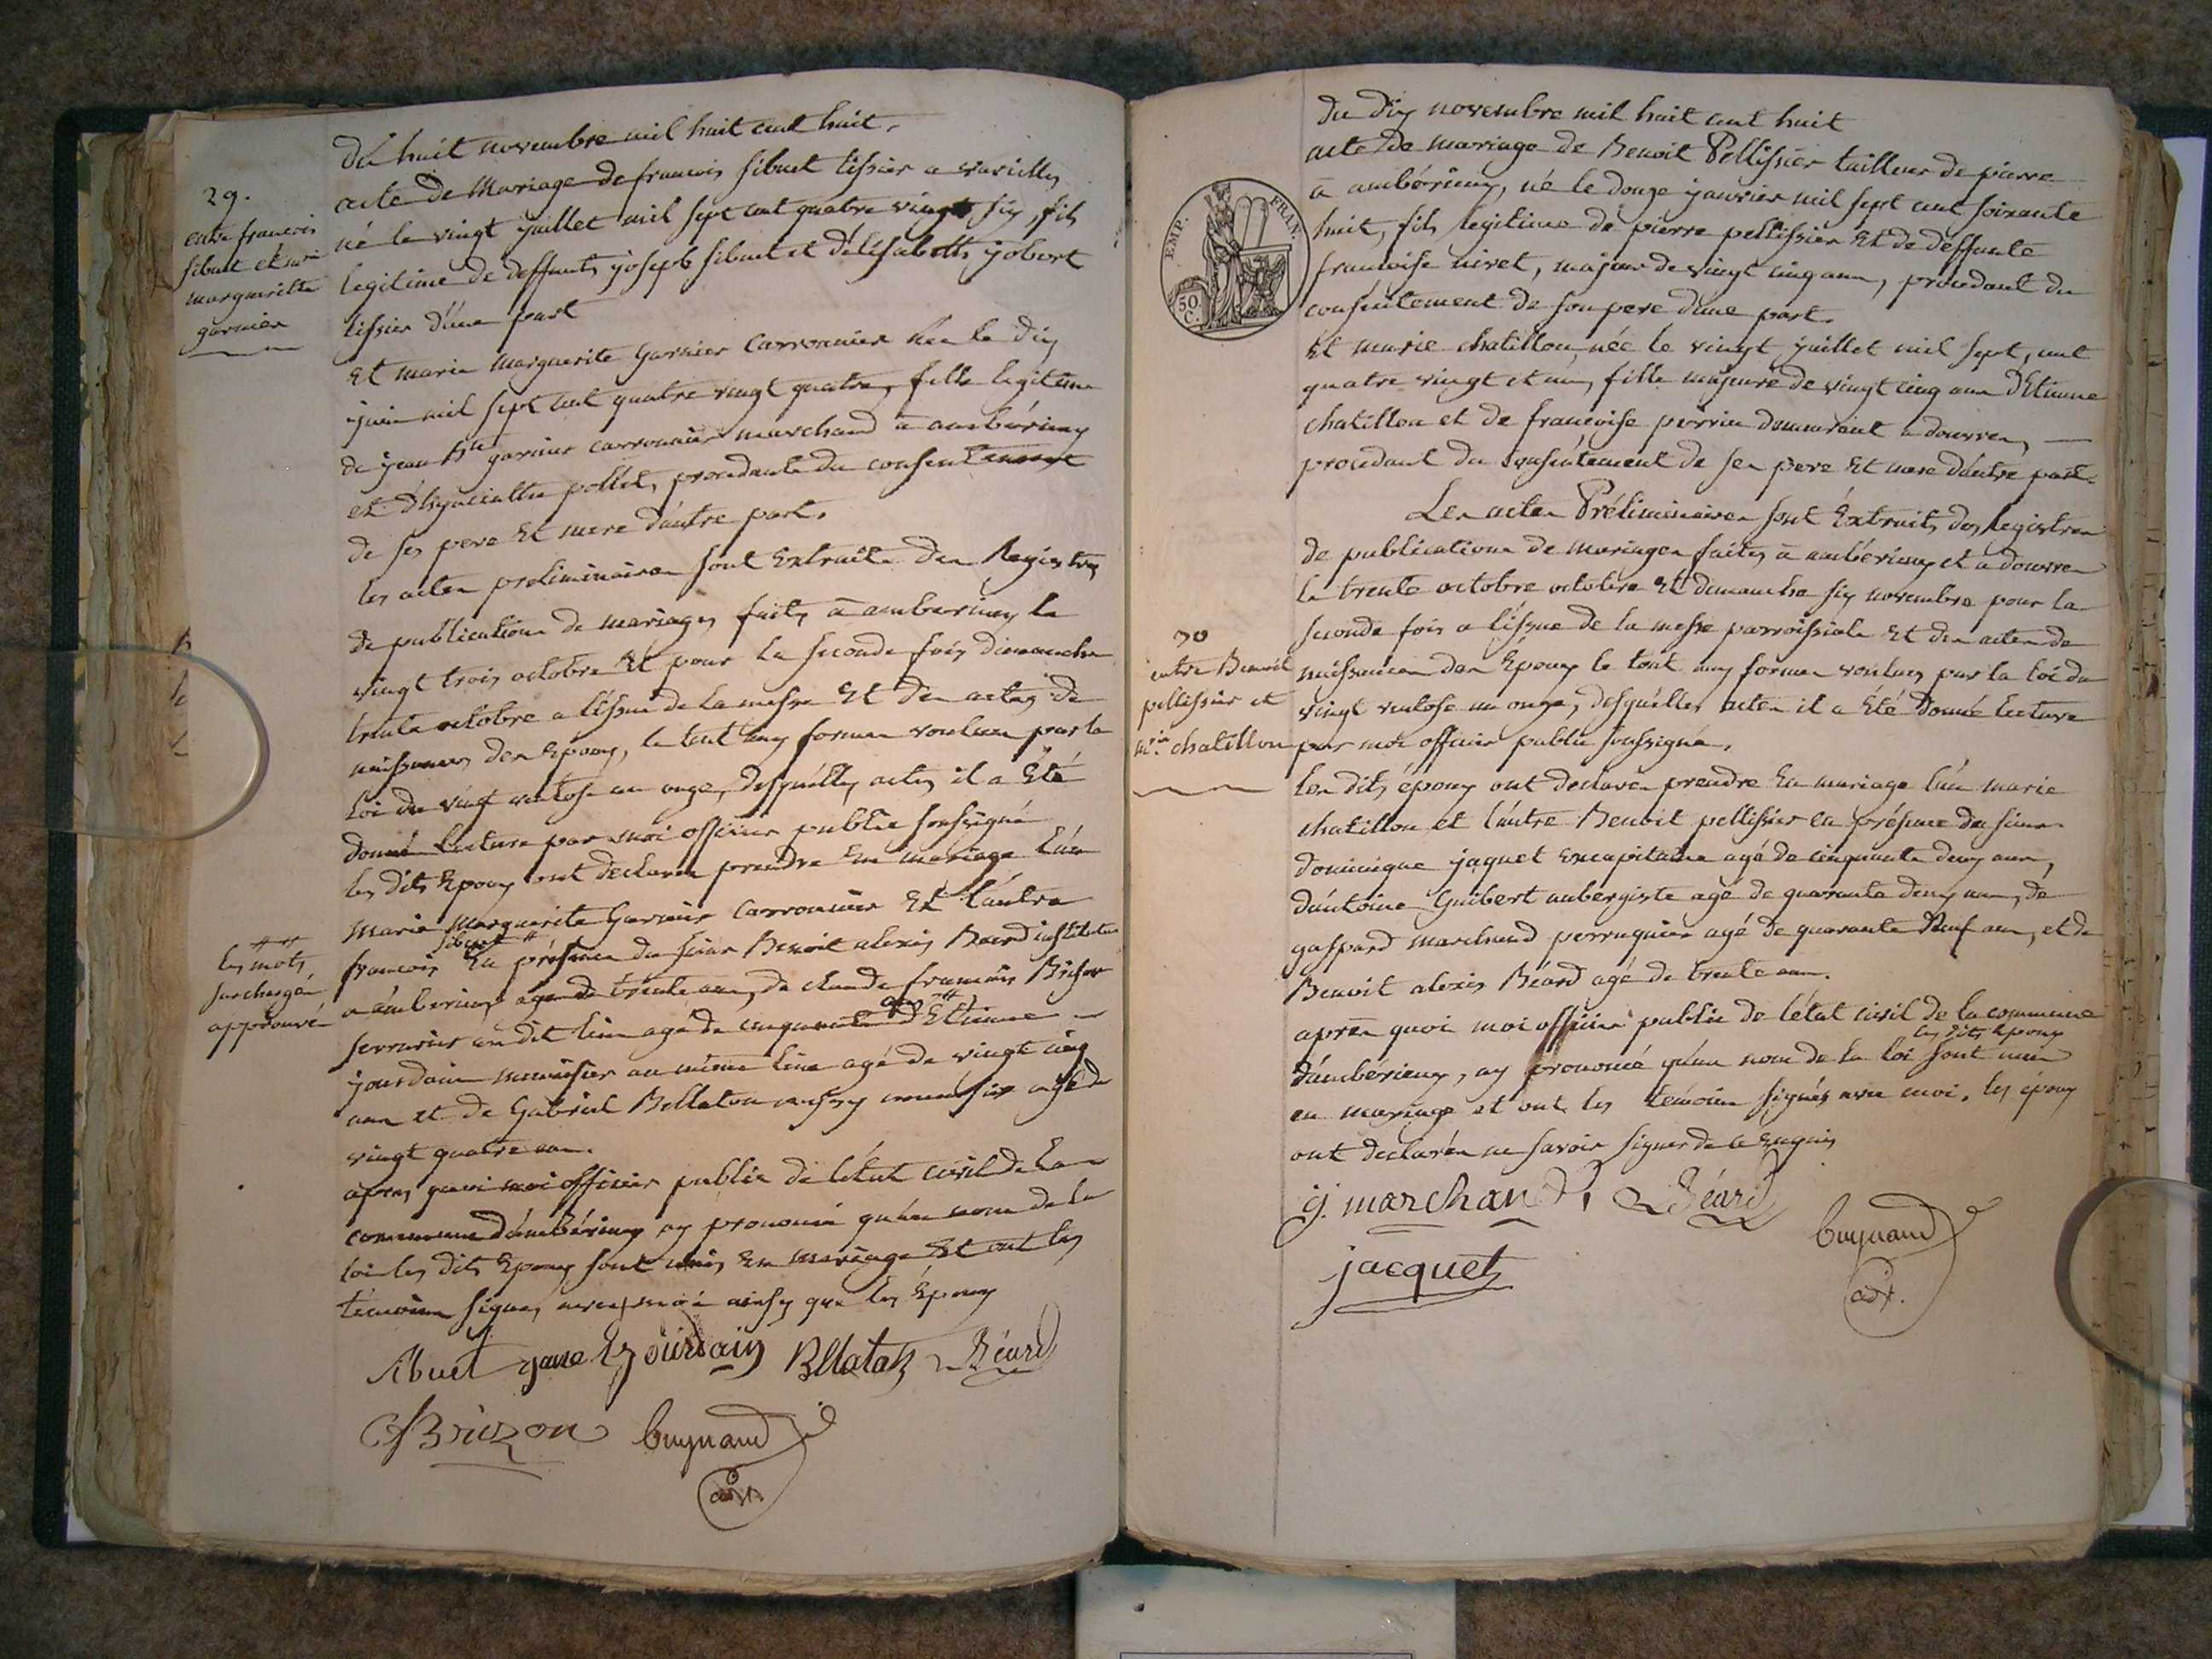 29.
entre francois
sibuet et marie
margueritte
garnier
du huit novembre mil huit cent huit,
acte de Mariage de francois sibuet tissier a
né le vingt juillet mil sept cent quatre vingt six, fils
legitime de deffunts joseph sibuet et d'élisabeth jobert
tissier d'une part
et marie Marguerite garnier Carronnier née le dix
juin mil sept cent quatre vingt quatre, fille legitime
de jean Bte garnier carronnier marchand à ambérieux
et d'hyacinthe pollet, procedante du consentement
de ses pere et mere d'autre part.
les actes preliminaires sont Extraits des Registres
de publications de mariages faits à amberieux le
vingt trois octobre et pour la seconde fois dimanche
trente octobre a l'issue de la messe et des actes de
naissances des Epoux, le tout aux formes voulues par la
loi du vingt ventose an onze, desquelles actes il a Eté
donné lecture par moi officier public soussigné
les dits Epoux ont declarés prendre En mariage l'un
Marie Marguerite Garnier Carronnier Et l'autre
francois sibuet # En présence du sieur Benoit alexis Beard instituteur
a amberieux agé de trente ans, de claude francois
serrurier au dit lieu agé de cinquante ans # d'Etienne
jourdain menuisier au même lieu agé de vingt cinq
ans et de Gabriel Bellaton aussy menuisier agé de
vingt quatre ans.
# #
les mots
surchargés
approuvés
apres quoi moi officier public de l'état civil de la
commune d'ambérieux ay prononcé qu'au nom de la
loi les dits Epoux sont unis En mariage Et ont les
témoins signes avec moi ainsy que les Epoux
Sibuet jourdain Bllaton Béard
Brizon buynand
adjt.
du dix novembre mil huit cent huit
acte de mariage de Benoit Pellissier tailleur de pierre
à ambérieux, né le douze janvier mil sept cent soixante
huit, fils legitime de pierre pellissier Et de deffunte
francoise niret, majeur de vingt cinq ans, procedant du
consentement de son pere d'une part.
EMP. FRAN.
50
C.
Et marie chatillon, née le vingt juillet mil sept, cent
quatre vingt et un, fille majeure de vingt cinq ans d'Etienne
chatillon et de francoise perrin demeurant a douvres,
procedant du consentement de ses pere Et mere d'autre part.
Les actes Préliminaires sont Extraits des Registres
de publications de mariages faites à ambérieux et a douvres
le trente octobre octobre Et dimanche six novembre pour la
seconde fois a l'issue de la messe parroissiale Et des actes de
naissances des Epoux le tout aux formes voulues par la loi du
vingt ventose an onze, desquelles actes il a Eté donné lecture
par moi officier public soussigné,
30
entre Benoit
pellissier et
mie chatillon
les dits époux ont declarés prendre En mariage l'un marie
chatillon et l'autre Benoit pellissier en présence du sieur
dominique jaquet excapitaine agé de cinquante deux ans,
d'antoine Guibert aubergiste agé de quarante deux ans, de
gaspard marchand perruquier agé de quarante Neuf ans, et de
Benoit alexis Béard agé de trente ans.
apres quoi moi officier public de l'état civil de la commune
d'ambérieux, ay prononcé qu'au nom de la loi les dits époux sont unis
en mariage et ont les temoins signés avec moi, les époux
ont declarés ne savoir signer de ce Enquis
g. marchand, Béard
buynand
jacquet
adjt.